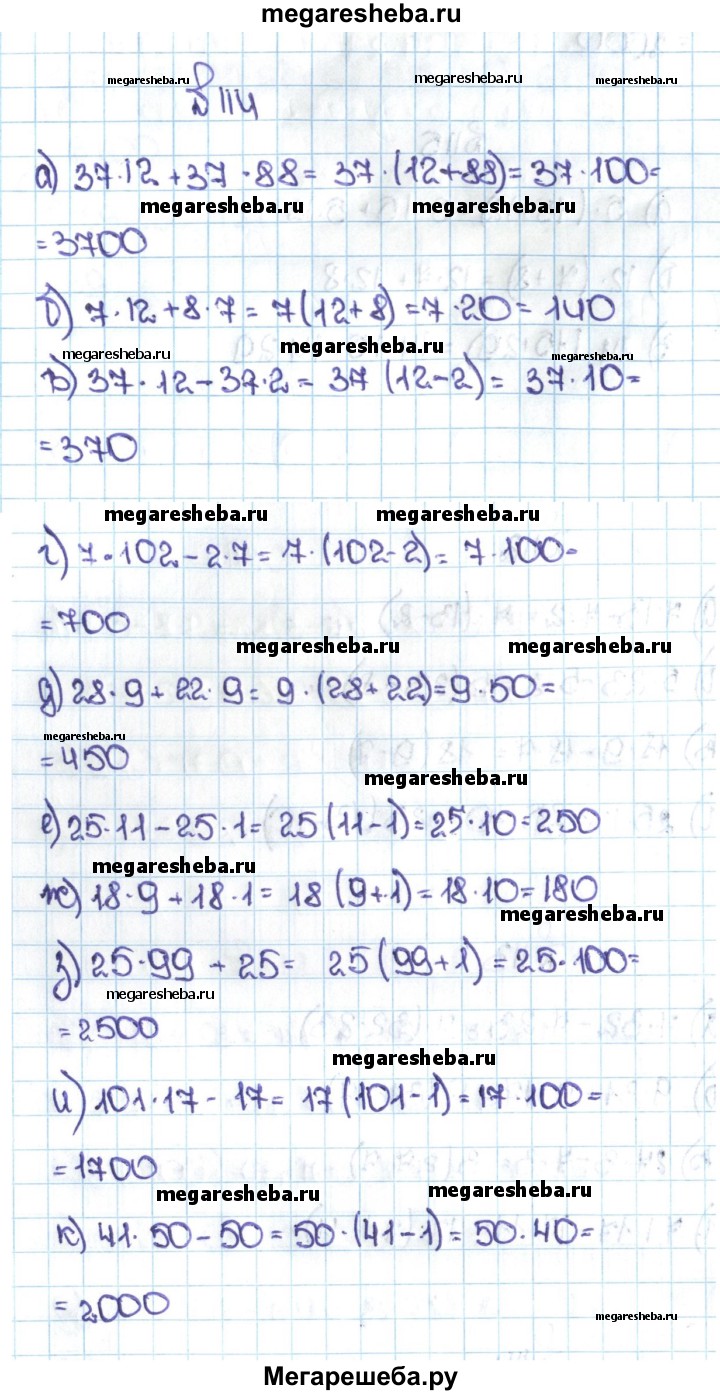 megaresheba.ru
megaresheba.ru megaresheba.ru megaresheba.ru
№ 114
а) 37·12+37·88= 37·(12+88)= 37·100=
megaresheba.ru megaresheba.ru
=3700
б) 7·12+8·7= 7(12+8)=7·20=140
megaresheba.ru megaresheba.ru megaresheba.ru
в) 37·12-37·2= 37(12-2)= 37·10=
=370
megaresheba.ru megaresheba.ru
г) 7·102-2·7=7·(102-2)= 7·100=
=700
megaresheba.ru megaresheba.ru
д) 28·9+22·9= 9·(28+22)=9·50=
megaresheba.ru
=450
megaresheba.ru
е) 25·11-25·1= 25(11-1)=25·10=250
megaresheba.ru
ж) 18·9+18·1= 18(9+1)=18·10=180
megaresheba.ru
з) 25·99+25= 25(99+1)=25·100=
megaresheba.ru
=2500
megaresheba.ru
и) 101·17-17= 17(101-1)=17·100=
=1700
megaresheba.ru megaresheba.ru
к) 41·50-50=50·(41-1)=50·40=
=2000
megaresheba.ru
Мегарешеба.ру